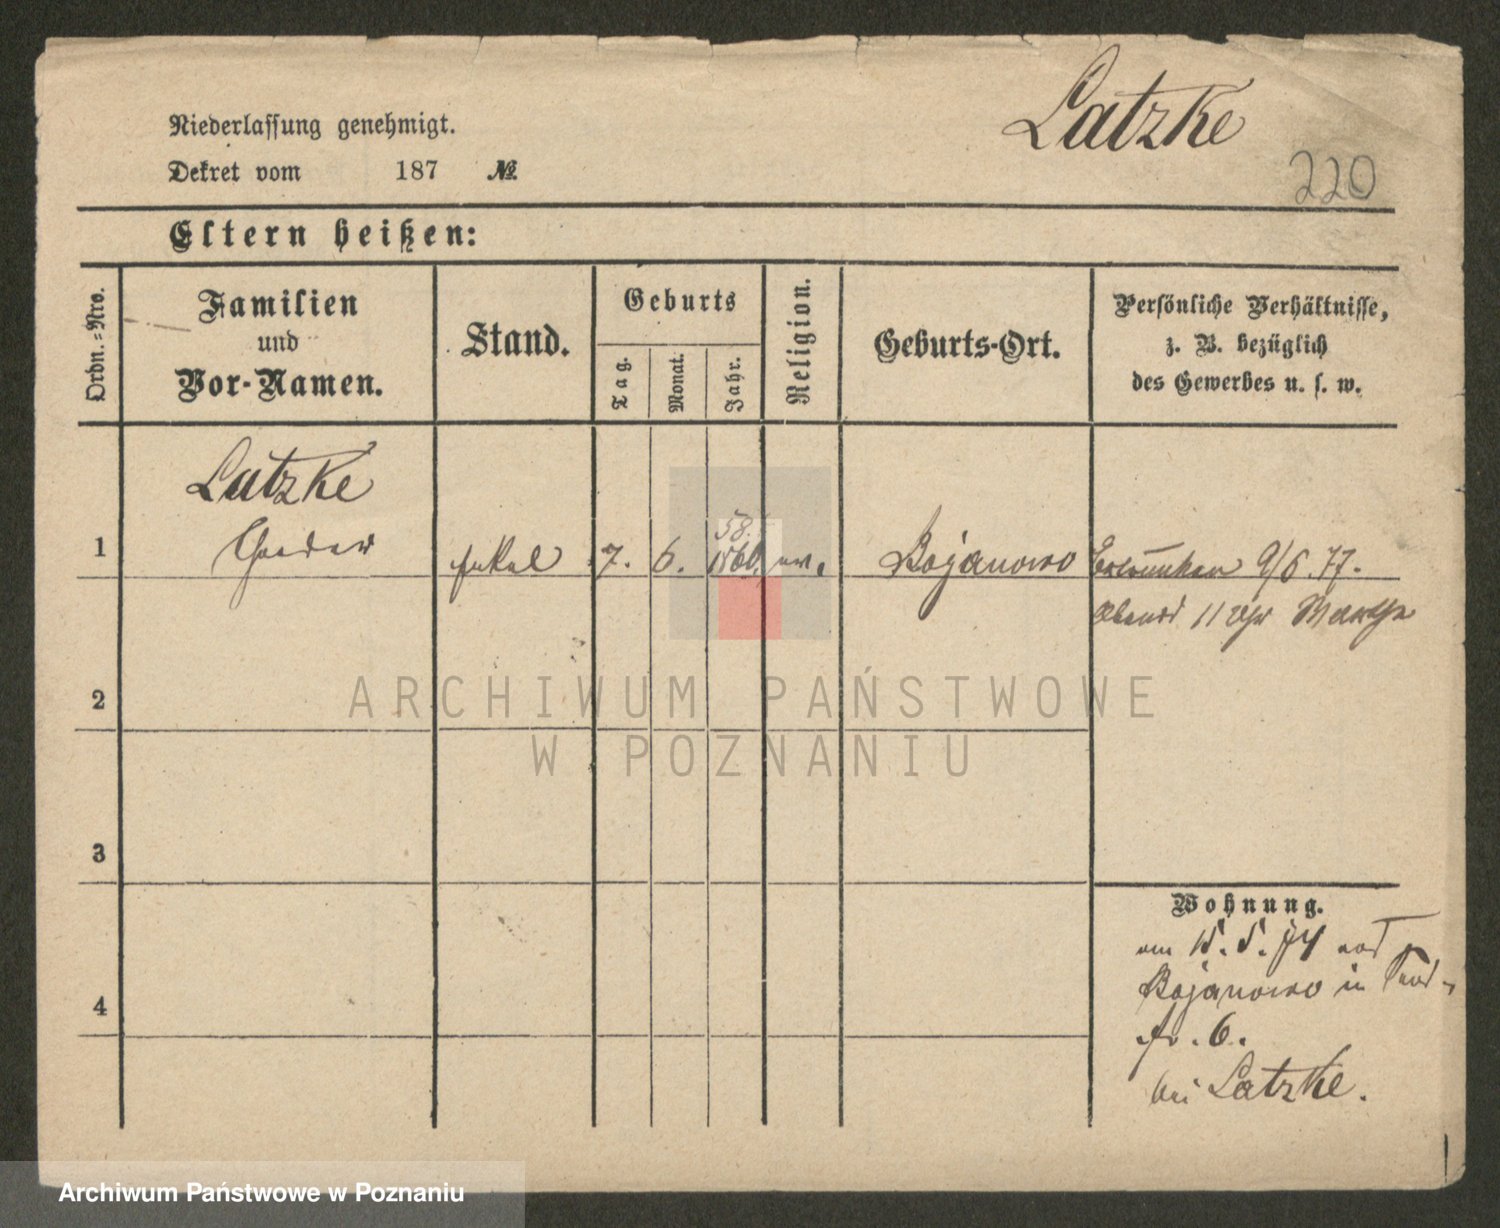 Latzke
220
Niederlassung genehmigt.
Dekret vom 187 №
Eltern heißen:
Ordn.-Nro.
Familien
und
Vor-Namen.
Stand.
Geburts
Tag.
Monat.
Jahr.
Religion.
Geburts-Ort.
Persönliche Verhältnisse,
z. B. bezüglich
des Gewerbes u. s. w.
Latzke
58.
1 7. 6. 1860. ev. Bojanowo Ertrunken 9/6. 77.
Abends 11 Uhr Warthe
2
3
4
Wohnung.
am 15. 5. 74 aus
Bojanowo in
6.
bei Latzke.
ARCHIWUM PAŃSTWOWE
W POZNANIU
Archiwum Państwowe w Poznaniu